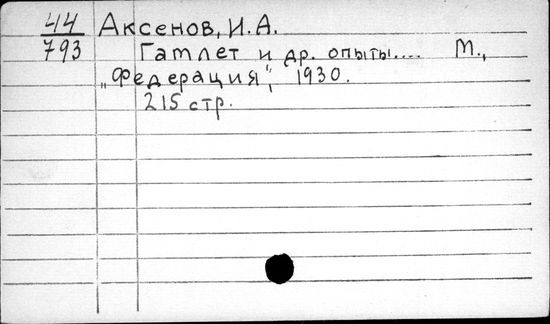 44 Аксенов, И.А.
793 Гамлет и др. опыты.... М.,
„Федерация", 1930.
215 стр.